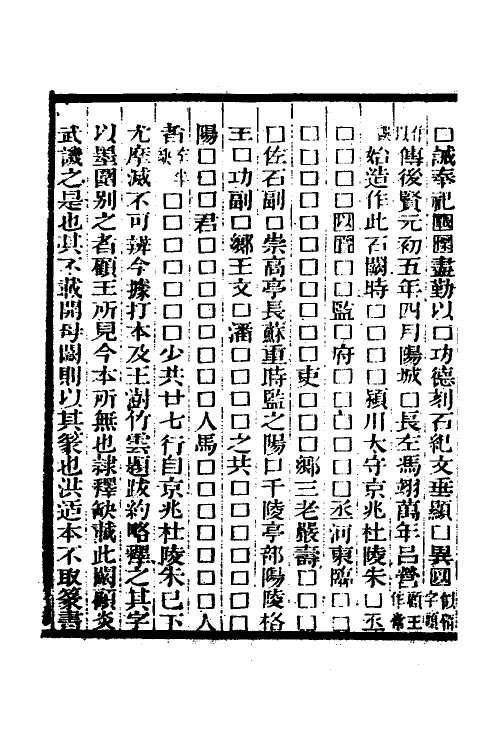 □誠奉祀圖圖盡勤以□功德刻石紀文垂顯□異國
傳後賢元初五年四月陽城□長左馮翊萬年呂營顧王作常
始造作此石闕時□□□□潁川太守京兆杜陵朱□丞
□□□□四圖□□監□府□□□□□□丞河東臨□□
□□□□□□□□□□□□吏□□□鄉三老嚴壽□□□
□佐石副□崇高亭長蘇重時監之陽□千陵亭部陽陵格
王□功副□鄉王文□潘□□□□□之共□□□□□□
陽□□□君□□□□□□□□□人馬□□□□□□□人
者□□□□□□□□少共廿七行自京兆杜陵朱已下
尤摩滅不可辨今據打本及王澍竹雲題跋約略釋之其字
以墨圍別之者顧王所見今本所無也隸釋缺載此闕顧炎
武譏之是也其不載開母闕則以其篆也洪适本不取篆書